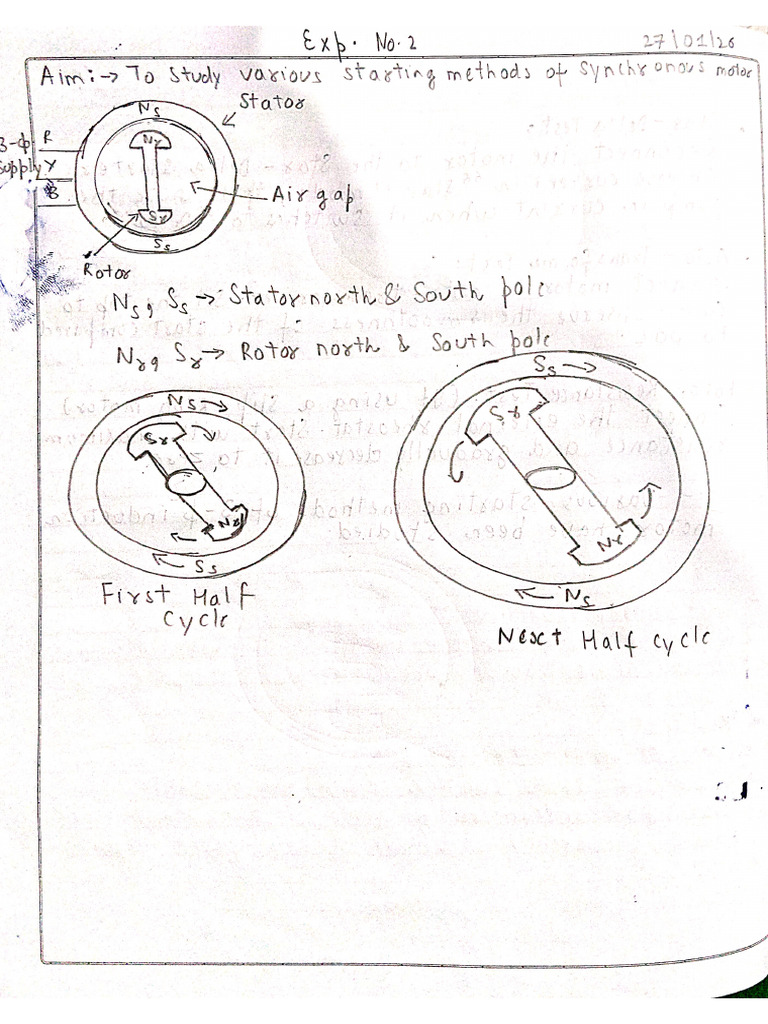 Exp. No.2
27/01/26
Aim:→ To study various starting methods of Synchronous motor
Stator
Ns
Nr
3-Φ R
supply Y
B
Air gap
Sr
Ss
Rotor
Ns, Ss → Stator north & South pole
Nr, Sr → Rotor north & South pole
Ss
Ns
Sr
Sr
Nr
Nr
Ss
Ns
First Half
Cycle
Next Half cycle